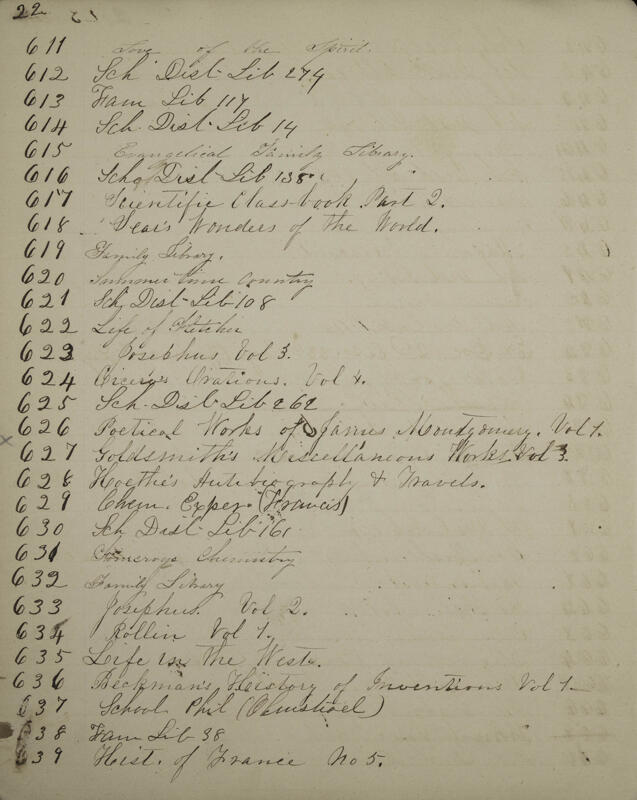 22
611 Love of the Spirit.
612 Sch Dist Lib 279
613 Fam Lib 117
614 Sch. Dist Lib 14
615 Evangelical Family Library.
616 Scho Dist Lib 138
617 Scientific Class-book Part 2.
618 Sear's Wonders of the World.
619 Family Library.
620 Summer time Country
621 Sch Dist Lib 108
622 Life of Fletcher
623 Josephus Vol 3.
624 Cicero's Orations. Vol
625 Sch. Dist Lib 262
x 626 Poetical Works of James Montgomery. Vol 1.
627 Goldsmith's Miscellaneous Works Vol 3
628 Goethe's Autobiography & Travels.
629 Chem. Exper. (Francis)
630 Sch Dist Lib 161
631 Chemistry
632 Family Library
633 Josephus. Vol 2.
634 Rollin Vol 1.
635 Life in the West.
636 Beckman's History of Inventions Vol 1
637 School Phil (Olmstead)
638 Fam Lib 38
639 Hist. of France No 5.